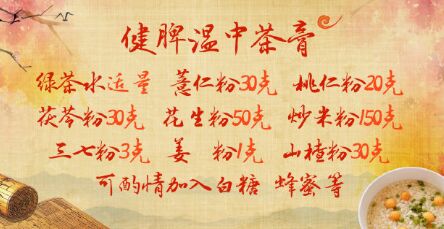 健脾温中茶膏
绿茶水适量 薏仁粉30克 桃仁粉20克
茯苓粉30克 花生粉50克 炒米粉150克
三七粉3克 姜 粉1克 山楂粉30克
可酌情加入白糖 蜂蜜等